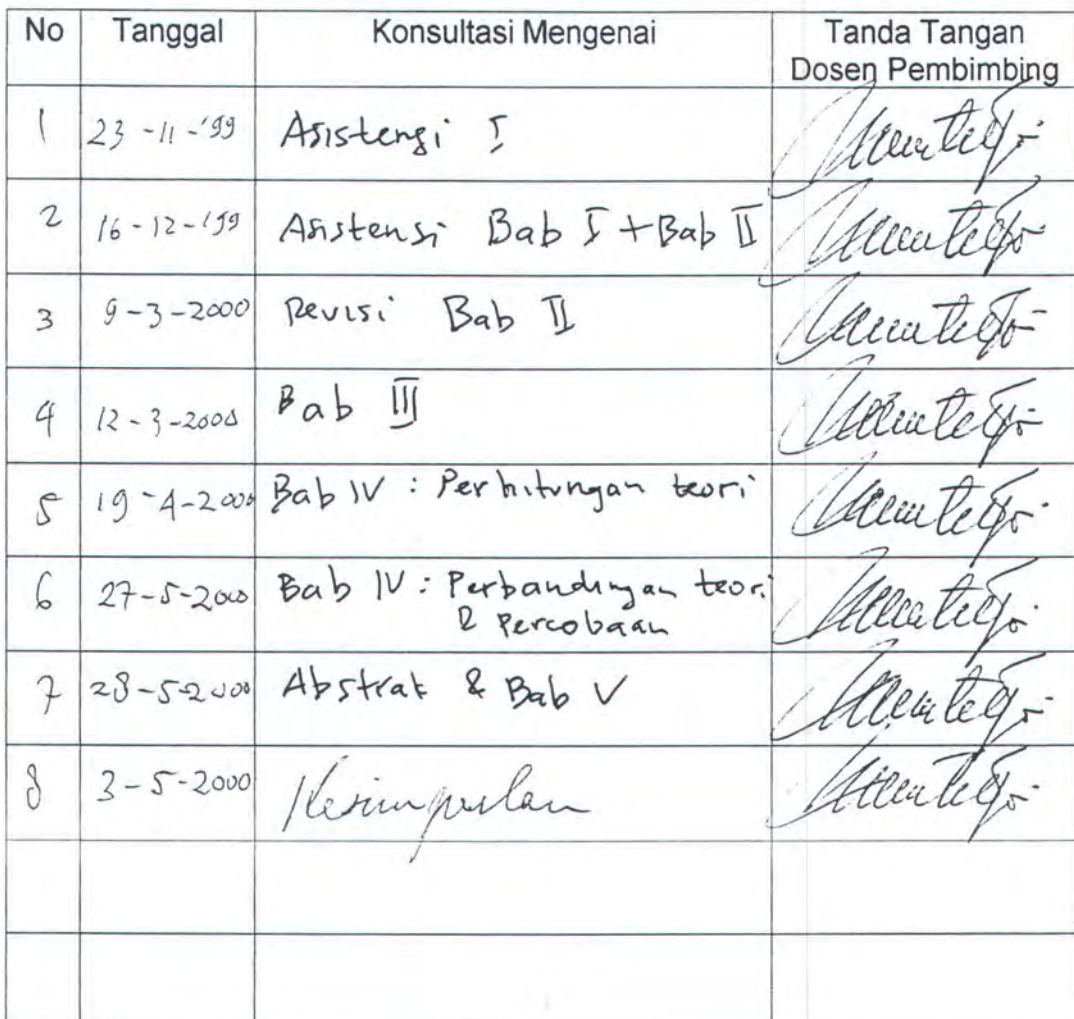 No Tanggal Konsultasi Mengenai Tanda Tangan
Dosen Pembimbing
1 23-11-'99 Asistensi I
2 16-12-'99 Asistensi Bab I + Bab II
3 9-3-2000 Revisi Bab II
4 12-3-2000 Bab III
5 19-4-2000 Bab IV : Perhitungan teori
6 27-5-2000 Bab IV : Perbandingan teori
& Percobaan
7 28-5-2000 Abstrak & Bab V
8 3-5-2000 Kesimpulan